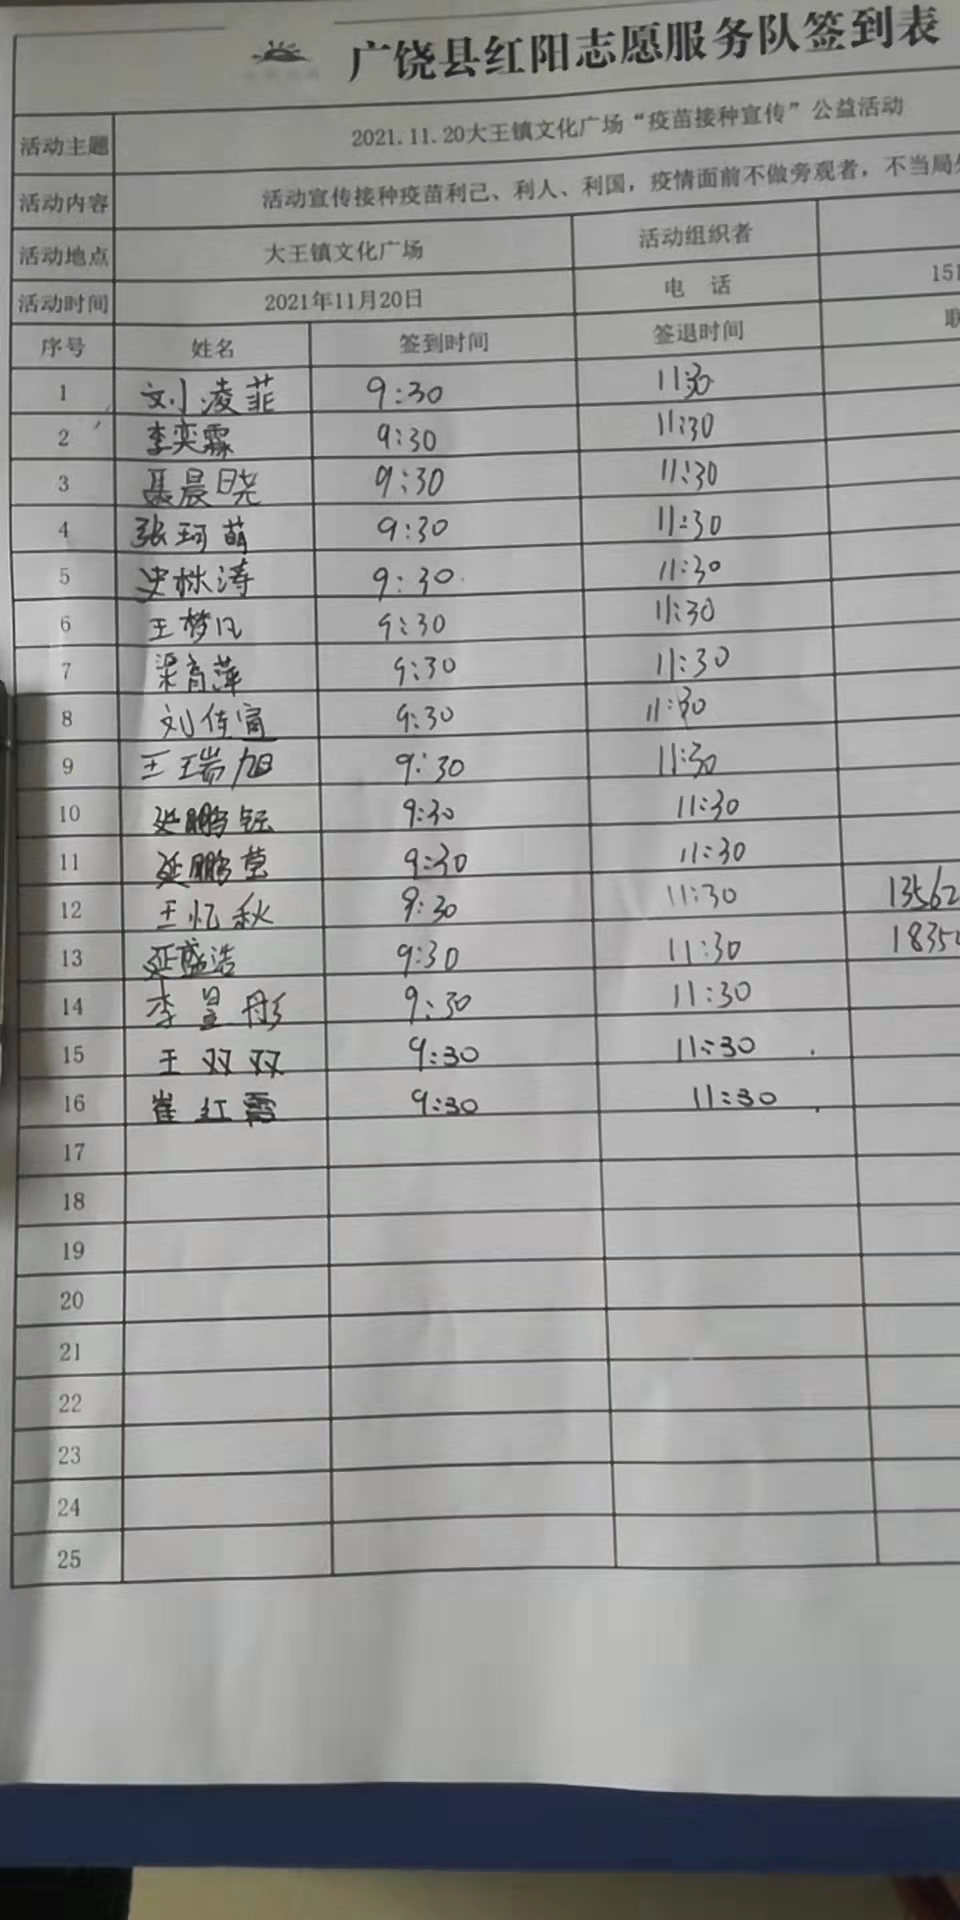 广饶县红阳志愿服务队签到表
活动主题 2021.11.20大王镇文化广场“疫苗接种宣传”公益活动
活动内容 活动宣传接种疫苗利己、利人、利国，疫情面前不做旁观者，不当局
活动地点 大王镇文化广场 活动组织者
活动时间 2021年11月20日 电 话 151
序号 姓名 签到时间 签退时间 联
1 刘凌菲 9:30 11:30
2 李奕霖 9:30 11:30
3 聂晨晓 9:30 11:30
4 张珂萌 9:30 11:30
5 史林涛 9:30 11:30
6 王梦凡 9:30 11:30
7 梁育萍 9:30 11:30
8 刘佳甯 9:30 11:30
9 王瑞旭 9:30 11:30
10 延鹏钰 9:30 11:30
11 延鹏莹 9:30 11:30
12 王忆秋 9:30 11:30 13562
13 延盛浩 9:30 11:30 1835
14 李昱彤 9:30 11:30
15 王双双 9:30 11:30
16 崔红霞 9:30 11:30
17
18
19
20
21
22
23
24
25